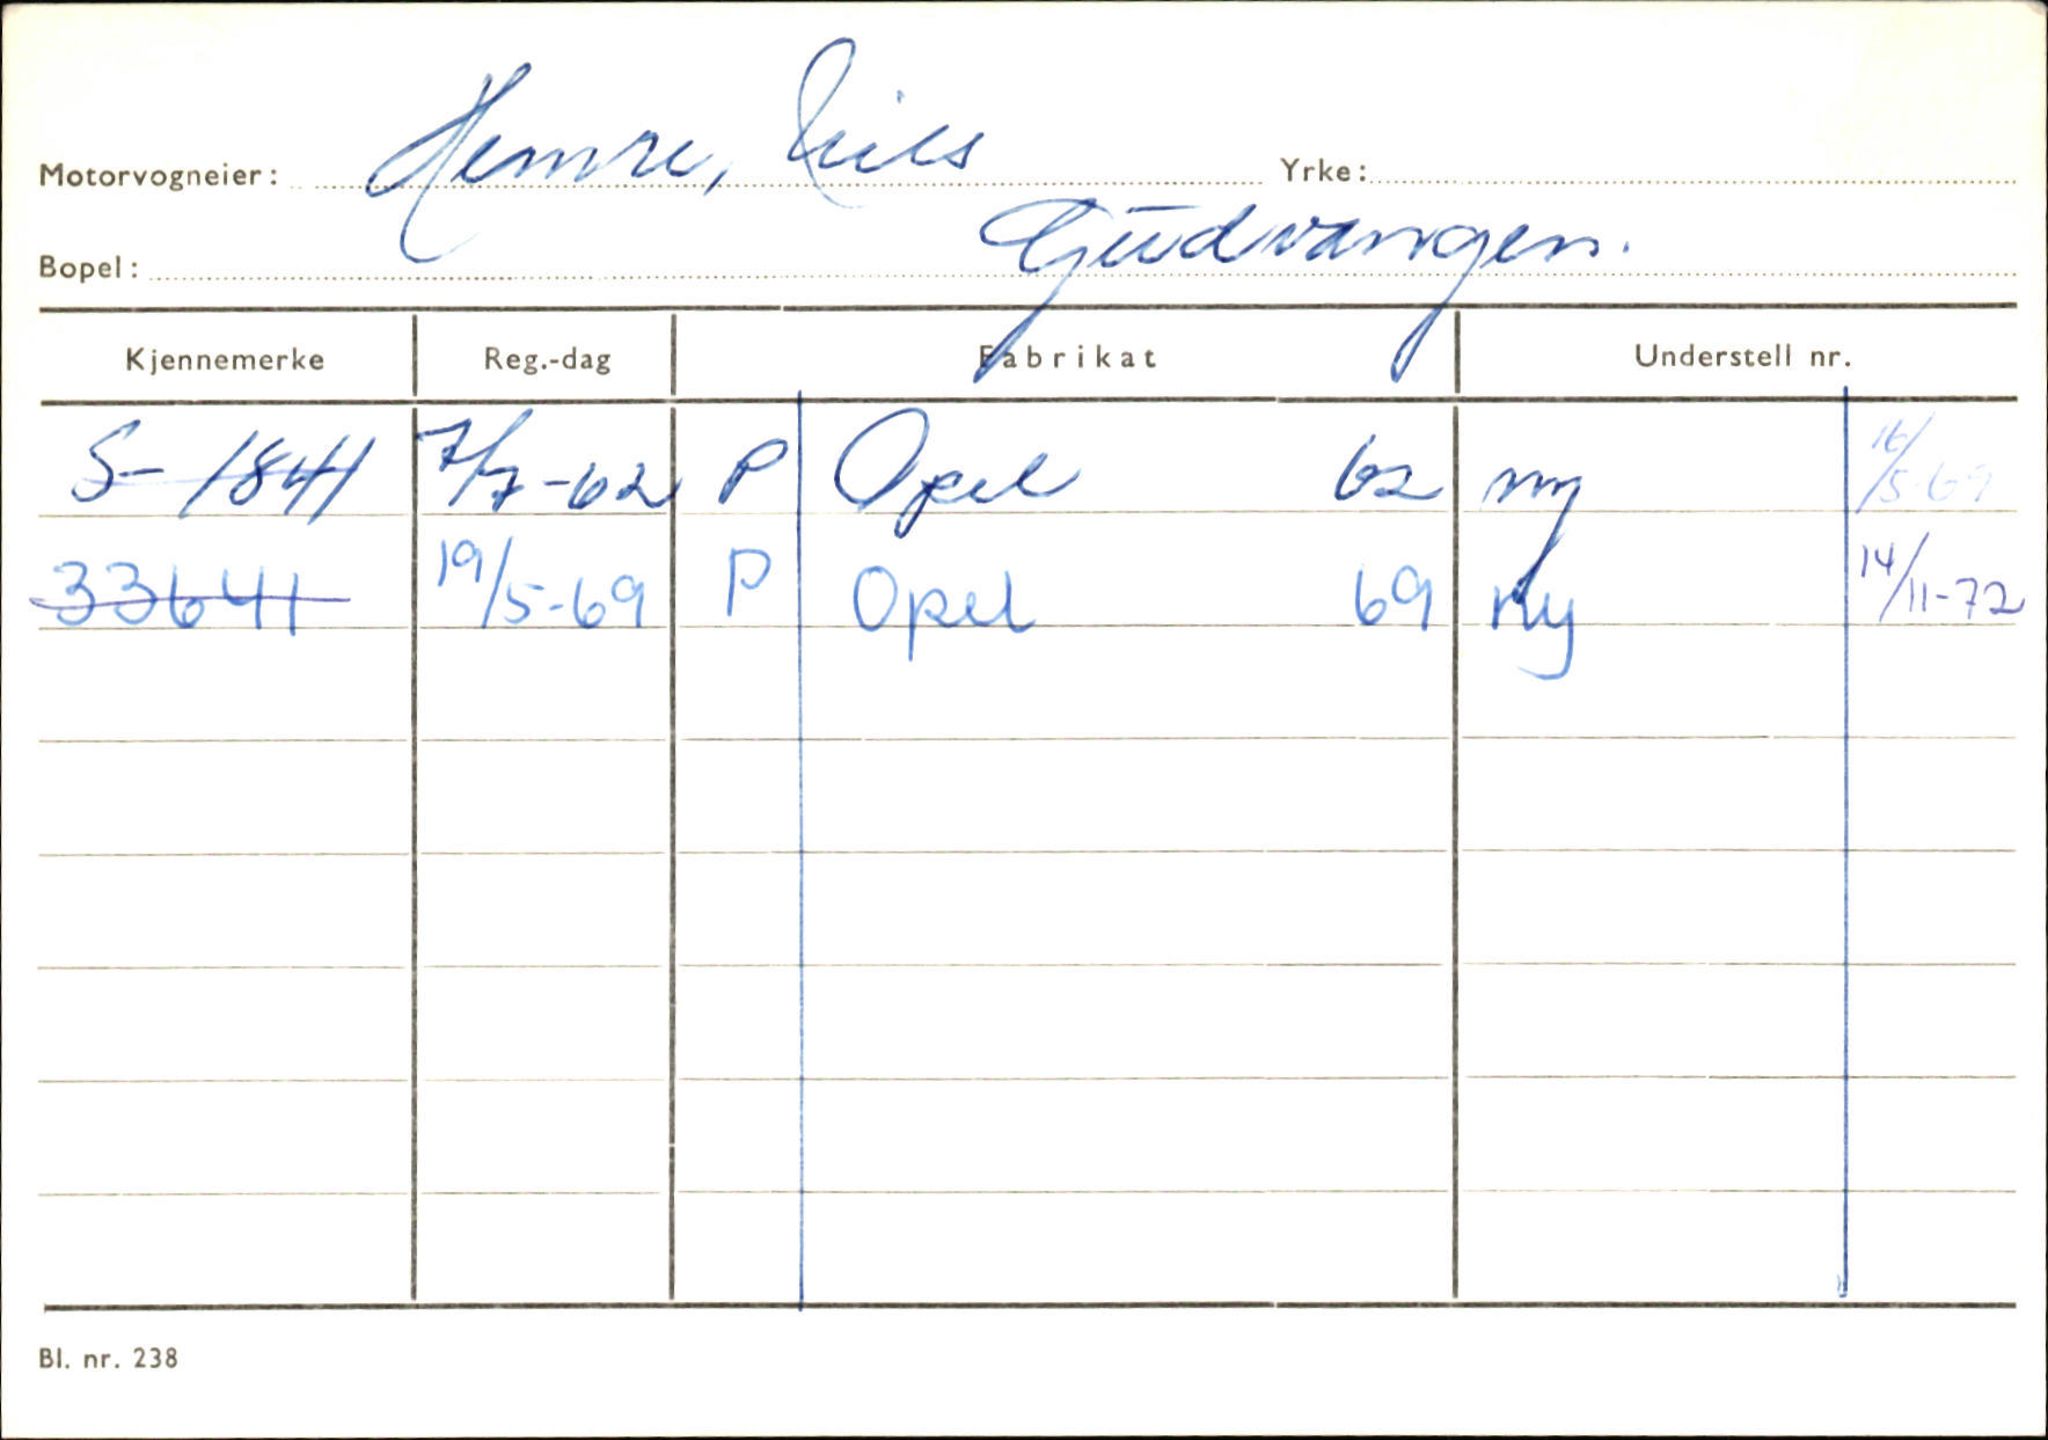 Motorvogneier: Hemre, Nils Yrke:
Bopel: Gudvangen.
Kjennemerke Reg.-dag Fabrikat Understell nr.
S-1841 7/7-62 P Opel 62 ny 16/5-69
33641 19/5-69 P Opel 69 Ny 14/11-72
Bl. nr. 238